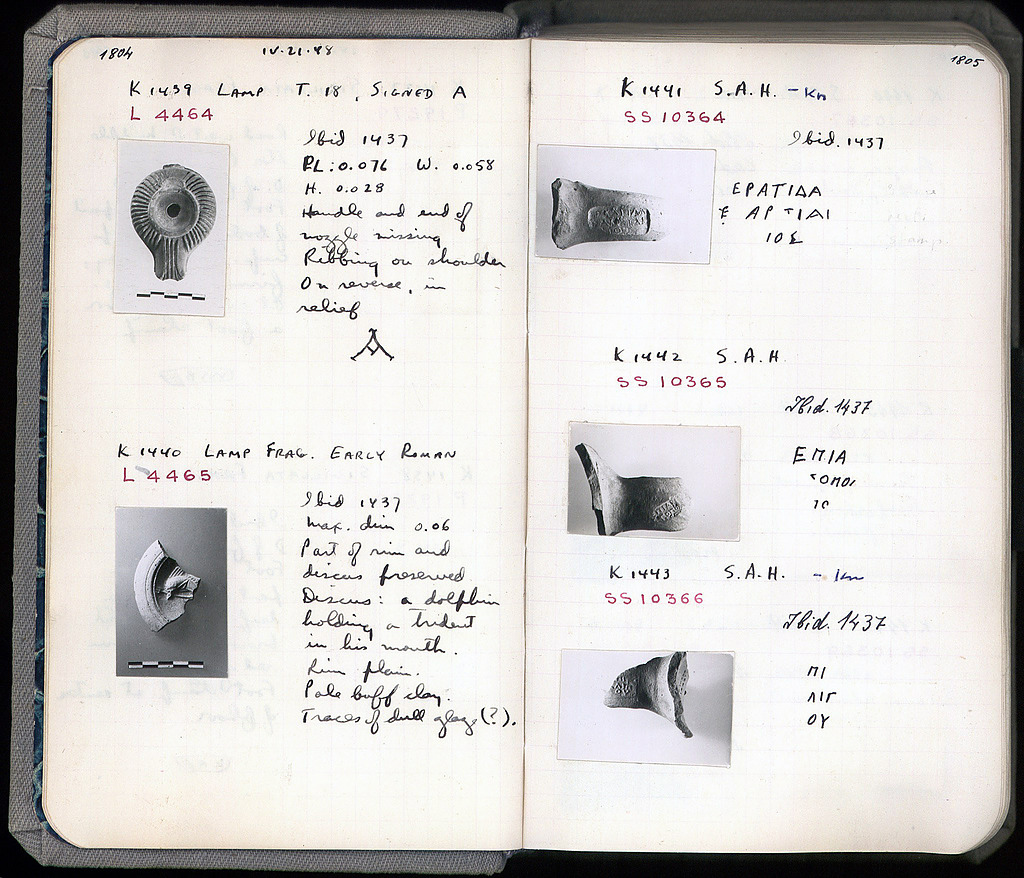 1804
IV-21-48
K 1439 LAMP T. 18, SIGNED A
L 4464
Ibid 1437
PL: 0.076 W. 0.058
H. 0.028
Handle and end of
nozzle missing
Ribbing on shoulder
On reverse, in
relief
A
K 1440 LAMP FRAG. EARLY ROMAN
L 4465
Ibid 1437
Max. dim 0.06
Part of rim and
discus preserved.
Discus: a dolphin
holding a trident
in his mouth.
Rim plain.
Pale buff clay.
Traces of dull glaze (?).
1805
K 1441 S.A.H. - Kn
SS 10364
Ibid. 1437
ΕΡΑΤΙΔΑ
ΑΡΤΙΔΙ
ΙΟΣ
K 1442 S.A.H.
SS 10365
Ibid. 1437
ΕΠΙΑ
K 1443 S.A.H. - Kn
SS 10366
Ibid. 1437
ΠΙ
ΛΙΓ
ΟΥ